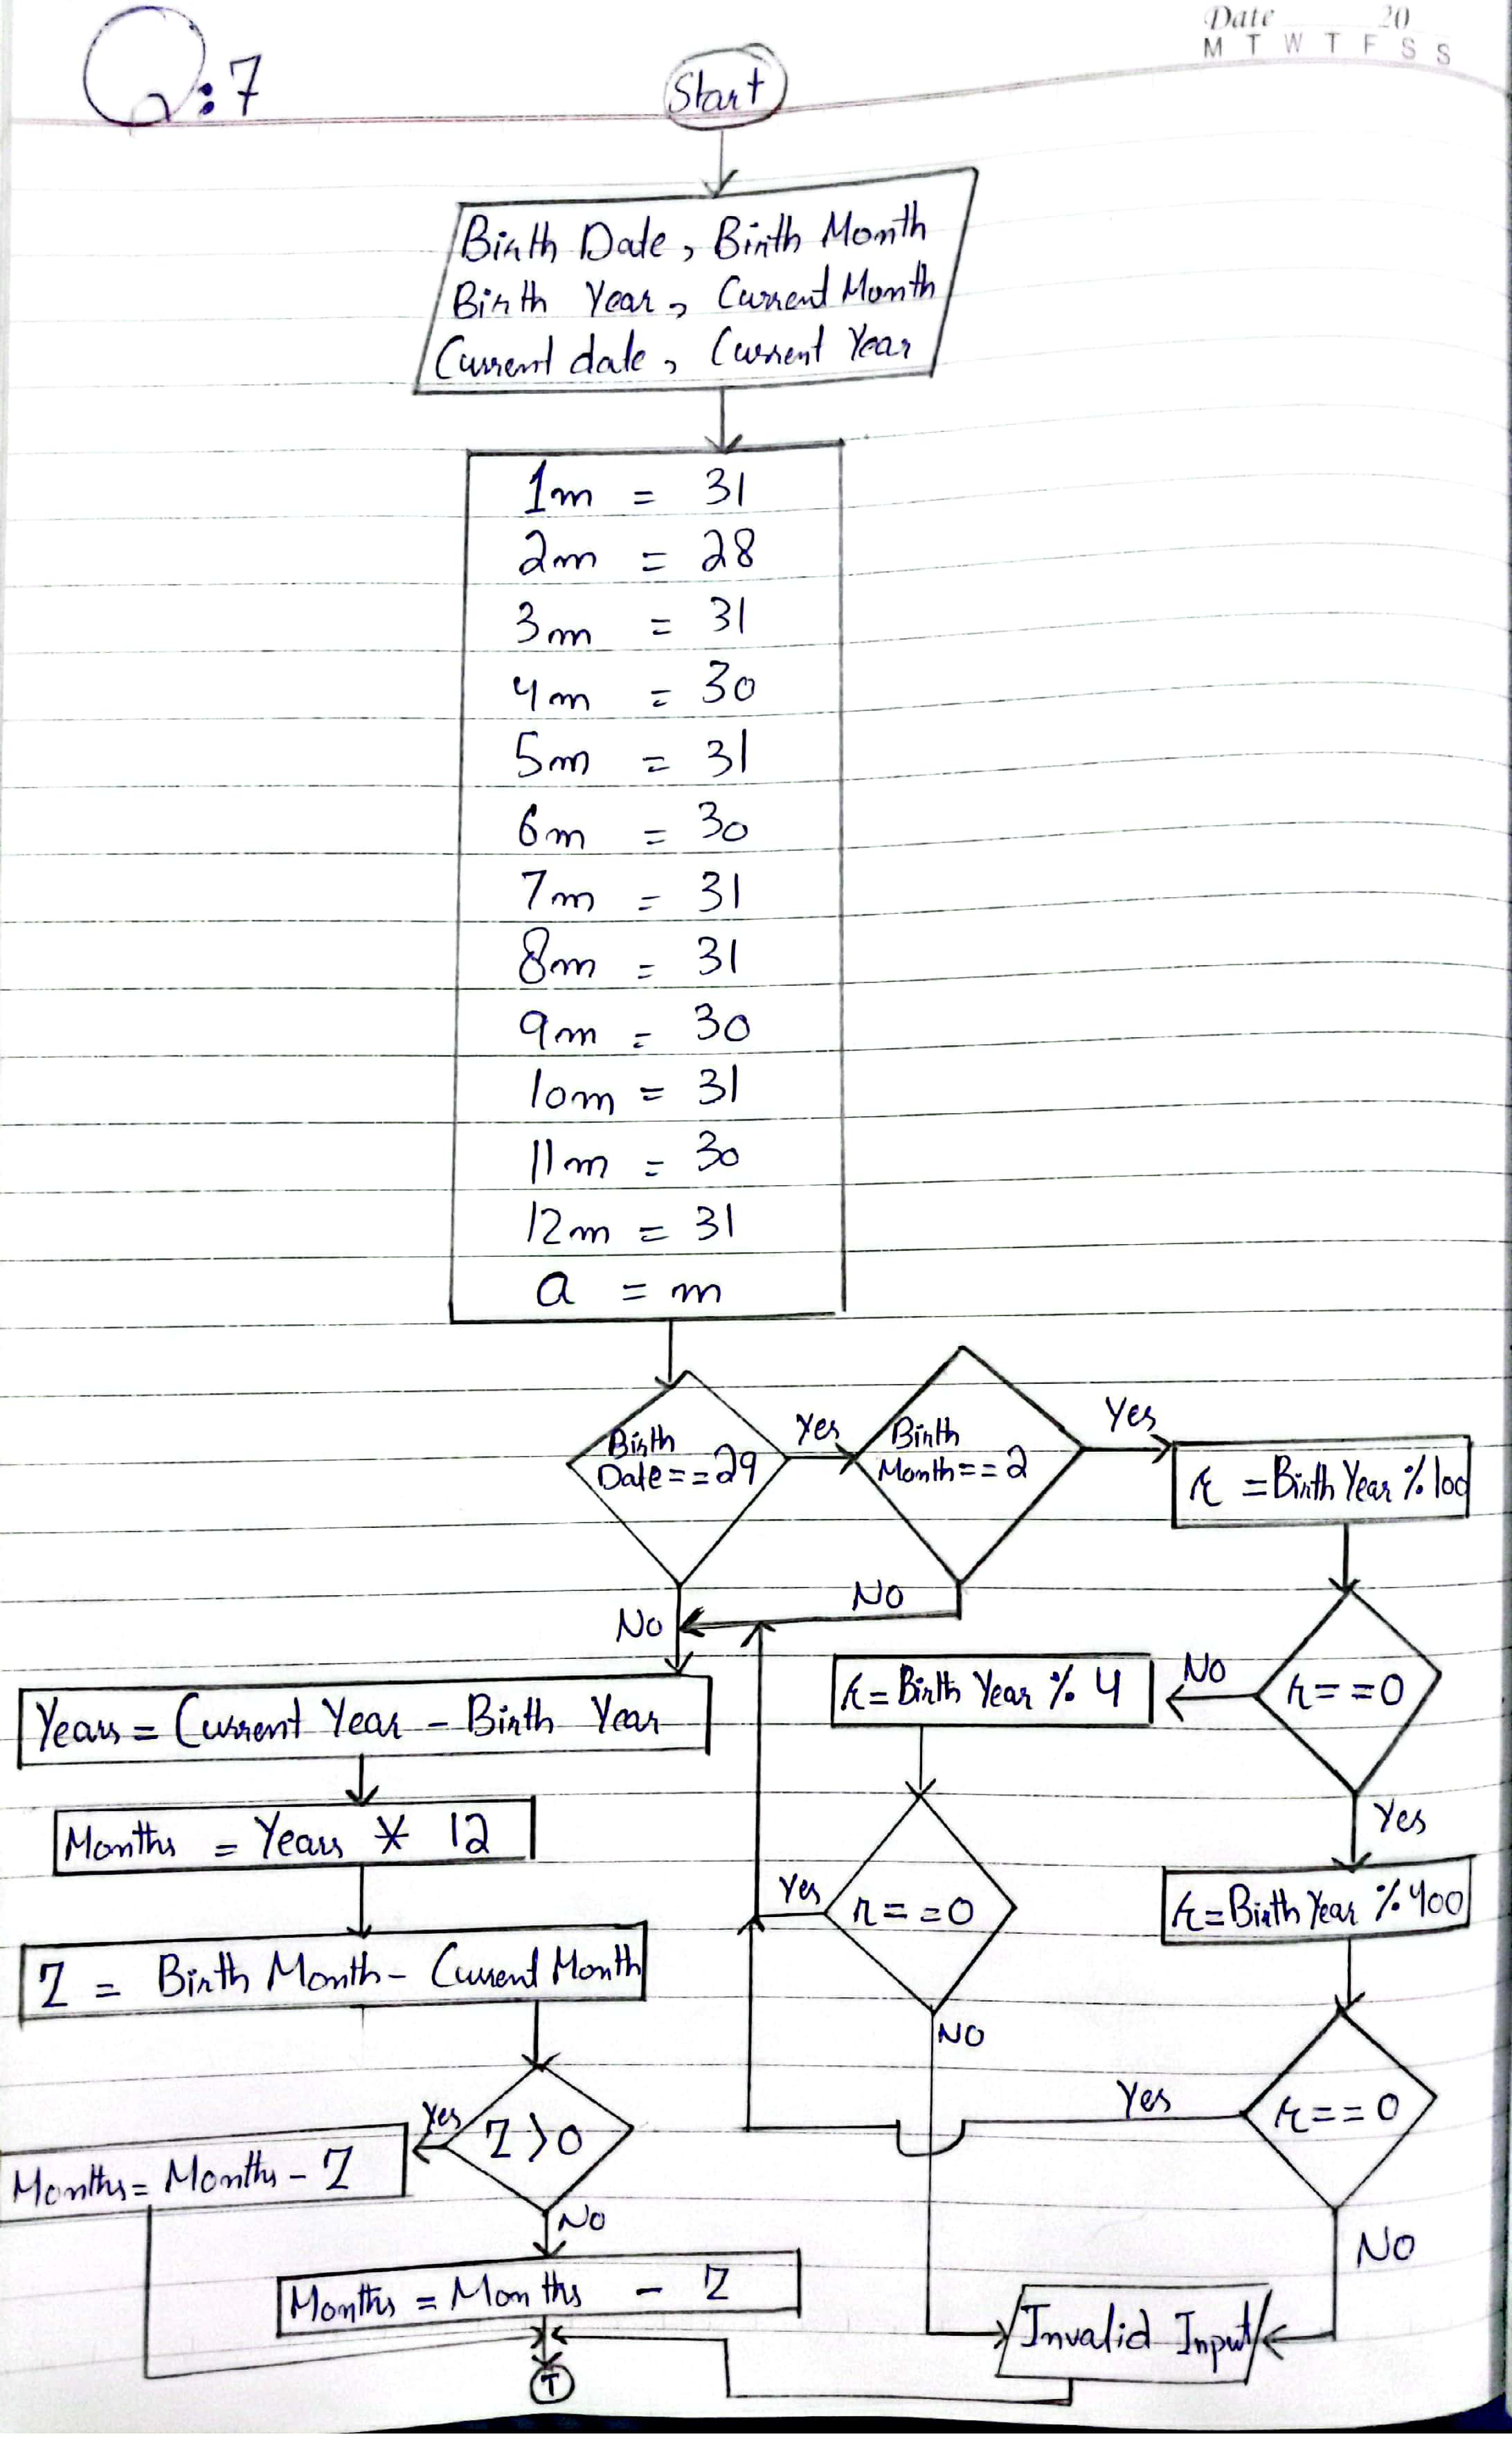 Date 20
M T W T F S S
Q:7
Start
Birth Date, Birth Month
Birth Year, Current Month
Current date, Current Year
1m = 31
2m = 28
3m = 31
4m = 30
5m = 31
6m = 30
7m = 31
8m = 31
9m = 30
10m = 31
11m = 30
12m = 31
a = m
Birth
Date==29
Yes
Birth
Month==2
Yes
r = Birth Year % 100
No
No
r==0
No
r = Birth Year % 4
Yes
r = Birth Year % 400
r==0
Yes
No
r==0
Yes
No
Invalid Input
Years = Current Year - Birth Year
Months = Years * 12
Z = Birth Month - Current Month
Z>0
Yes
Months = Months - Z
No
Months = Months - Z
T